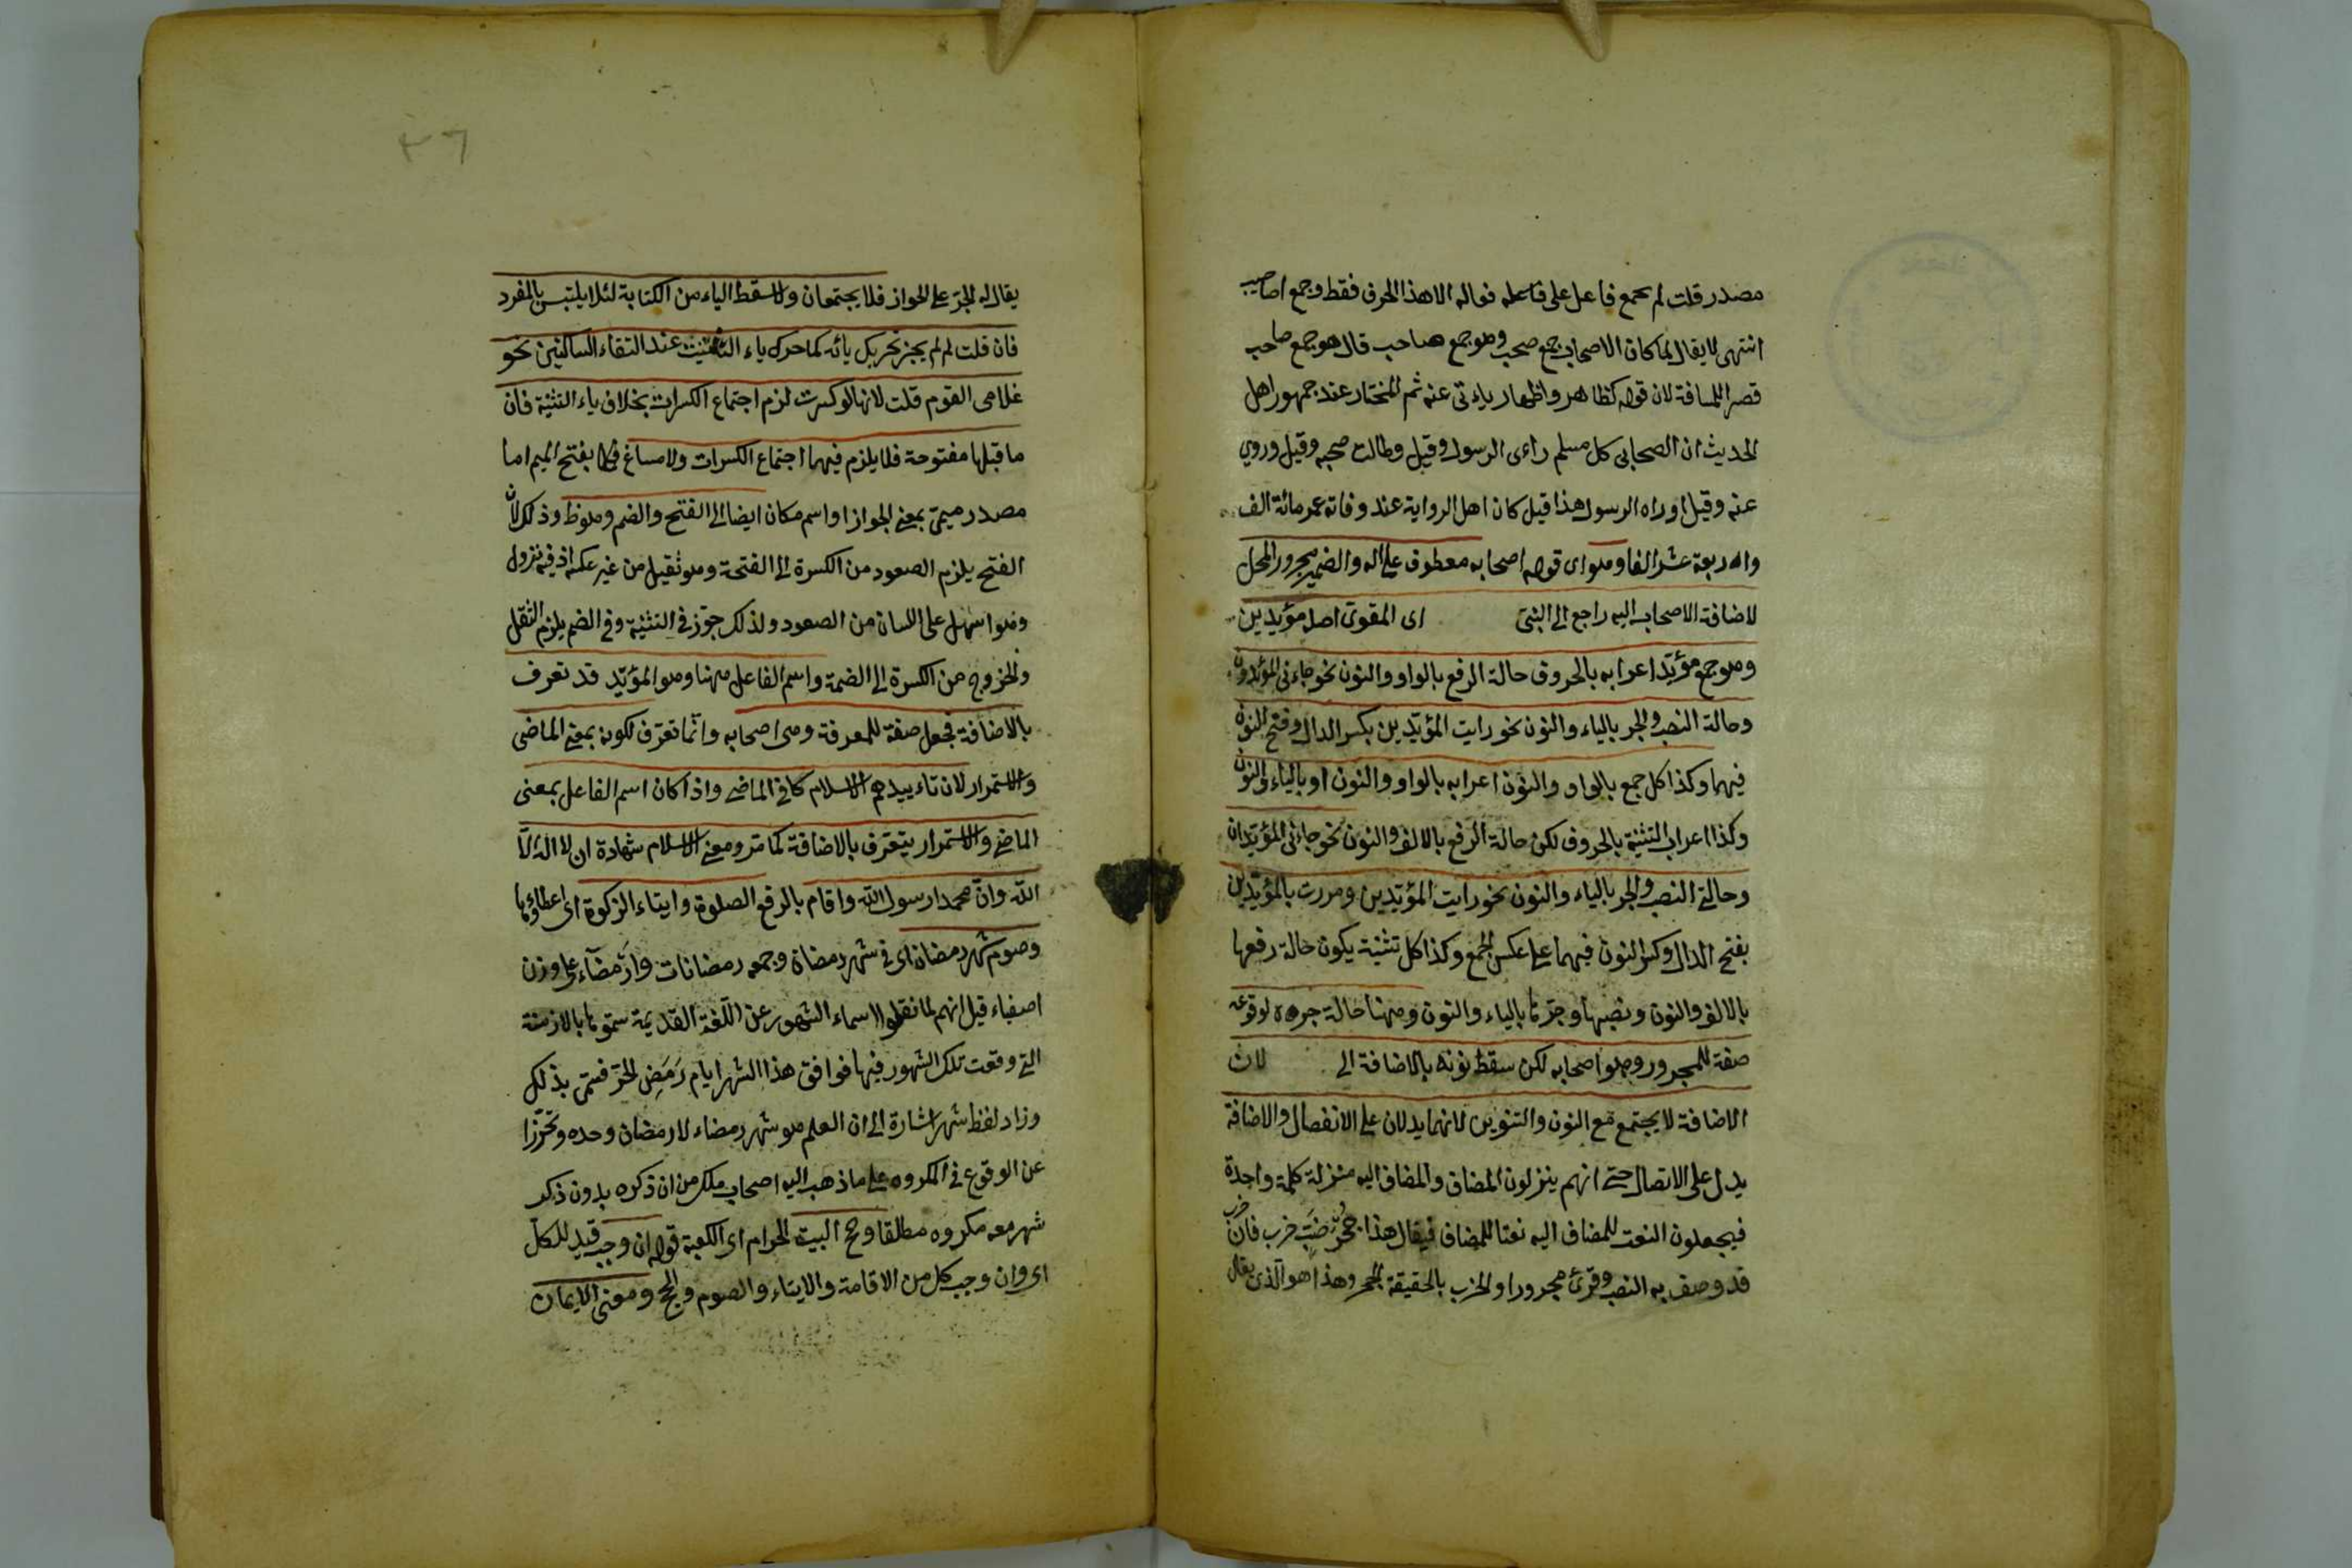 مصدر قلت لم يجمع فاعل على فعاله الا هذا الحرف فقط وجمع اصاحيب
انتهى لا يقال لما كان الاصحاب جمع صحب وهو جمع صاحب قال هو جمع صاحب
قصر المسافة لان قوله كظاهر واظهار ياءتى عنه ثم المختار عند جمهور اهل
الحديث ان الصحابى كل مسلم راءى الرسول وقيل وطالت صحبه وقيل وروي
عنه وقيل اوراه الرسول هذا قيل كان اهل الرواية عند وفاته عم مائة الف
واربعة عشر الفا وهو اى قوله اصحابه معطوف على اله والضمير مجرور المحل
لاضافة الاصحاب اليه راجع الى النبى اى المقوى اصل مؤيدين
وهو جمع مؤيد اعرابه بالحروف حالة الرفع بالواو والنون نحو جاءنى المؤيدون
وحالة النصب والجر بالياء والنون نحو رايت المؤيدين بكسر الدال وفتح النون
فيهما وكذا كل جمع بالواو والنون اعرابه بالواو والنون او بالياء والنون
وكذا اعراب التثنية بالحروف لكن حالة الرفع بالالف والنون نحو جاءنى المؤيدان
وحالتى النصب والجر بالياء والنون نحو رايت المؤيدين ومررت بالمؤيدين
بفتح الدال وكسر النون فيهما على عكس الجمع وكذا كل تثنية يكون حالة رفعها
بالالف والنون ونصبها وجرها بالياء والنون وههنا حالة جره لوقوعه
صفة للمجرور وهو اصحابه لكن سقط نونه بالاضافة الى لان
الاضافة لا يجتمع مع النون والتنوين لانهما يدلان على الانفصال والاضافة
يدل على الاتصال حتى انهم ينزلون المضاف والمضاف اليه منزلة كلمة واحدة
فيجعلون النعت للمضاف اليه نعتا للمضاف فيقال هذا جحر ضب خرب فان خرب
قد وصف به النصب وقرئ مجرورا والخرب بالحقيقة الجحر وهذا هو الذى يقال
٣٦
يقال له الجر على الجواز فلا يجتمعان ولاسقط الياء من الكتابة لئلا يلتبس بالمفرد
فان قلت لم لم يجز تحريك يائه كما حرك ياء التثنيت عند التقاء الساكنين نحو
غلامى القوم قلت لانها لو كسرت لزم اجتماع الكسرات بخلاف ياء التثنية فان
ما قبلها مفتوحة فلا يلزم فيهما اجتماع الكسرات ولا مساغ بفتح الميم اما
مصدر ميمى بمعنى الجواز او اسم مكان ايضا الى الفتح والضم وهو ظ وذلك لان
الفتح يلزم الصعود من الكسرة الى الفتحة وهو ثقيل من غير عكس اذ فيه نزول
وهو اسهل على اللسان من الصعود ولذلك جوز فى التثنية وفى الضم يلزم الثقل
والخروج من الكسرة الى الضمة واسم الفاعل ههنا وهو المؤيد قد تعرف
بالاضافة فجعل صفة للمعرفة وهى اصحابه وانما تعرف لكونه بمعنى الماضى
والاستمرار لان تاءييدهم الاسلام كا فى الماضى واذا كان اسم الفاعل بمعنى
الماضى والاستمرار يتعرف بالاضافة كما مر ومعنى الاسلام شهادة ان لا اله الا
الله وان محمدا رسول الله واقام بالرفع الصلوة وايتاء الزكوة اى اعطاؤها
وصوم شهر رمضان اى فى شهر رمضان وجمعه رمضانات وارمضاء على وزن
اصفياء قيل انهم لما نقلوا اسماء الشهور عن اللغة القديمة سموها بالازمنة
التى وقعت تلك الشهور فيها فوافق هذا الشهر ايام رمض الحر فسمى بذلك
وزاد لفظ شهر اشارة الى ان العلم هو شهر رمضاء لا رمضان وحده وتحرزا
عن الوقوع فى المكروه على ما ذهب اليه اصحاب ملك من ان ذكره بدون ذكر
شهر معه مكروه مطلقا وحج البيت الحرام اى الكعبة قوله ان وجب قيد للكل
اى وان وجب كل من الاقامة والايتاء والصوم والحج ومعنى الايمان